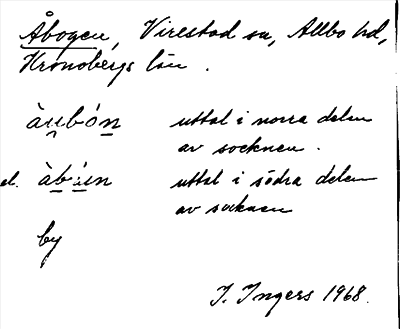 Åbogen, Virestad sn, Allbo hd,
Kronobergs län.
àu̯bón uttal i norra delen
av socknen.
el. àbún uttal i södra delen
av socknen
by
I. Ingers 1968.